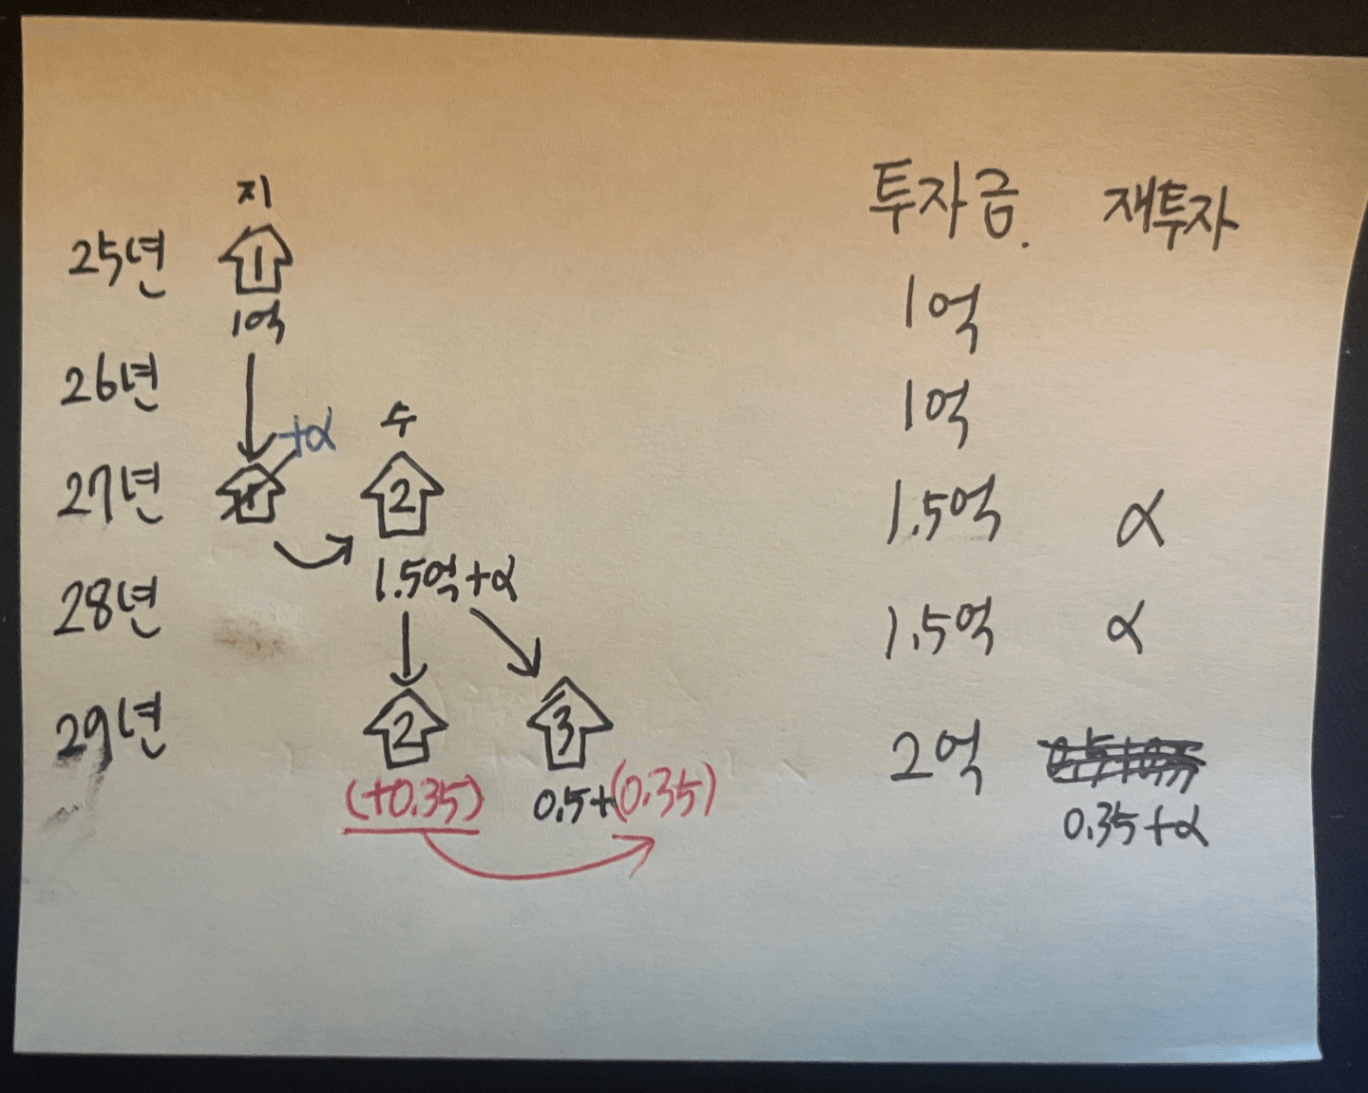 지
투자금. 재투자
25년 1
1억 1억
26년 1억
+α 수
27년 1 2 1.5억 α
1.5억+α
28년 1.5억 α
29년 2 3 2억
(+0.35) 0.5+(0.35) 0.35+α